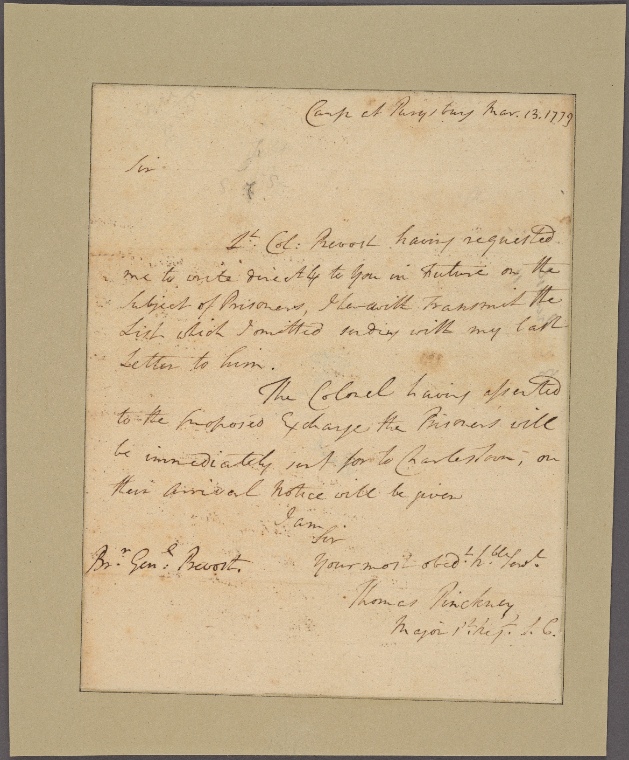 Camp at Purysburg Mar. 13. 1779
Sir
Lt. Col: Prevost having requested
me to write directly to you in Future on the
Subject of Prisoners, I herewith transmit the
List which I omitted sending with my last
Letter to him.
The Colonel having assented
to the proposed Exchange, the Prisoners will
be immediately sent for to Charlestown; on
their arrival notice will be given
I am
Sir
Your most obedt. hble Servt.
Br. Genl. Prevost.
Thomas Pinckney
Major 1st. Regt. S. C.